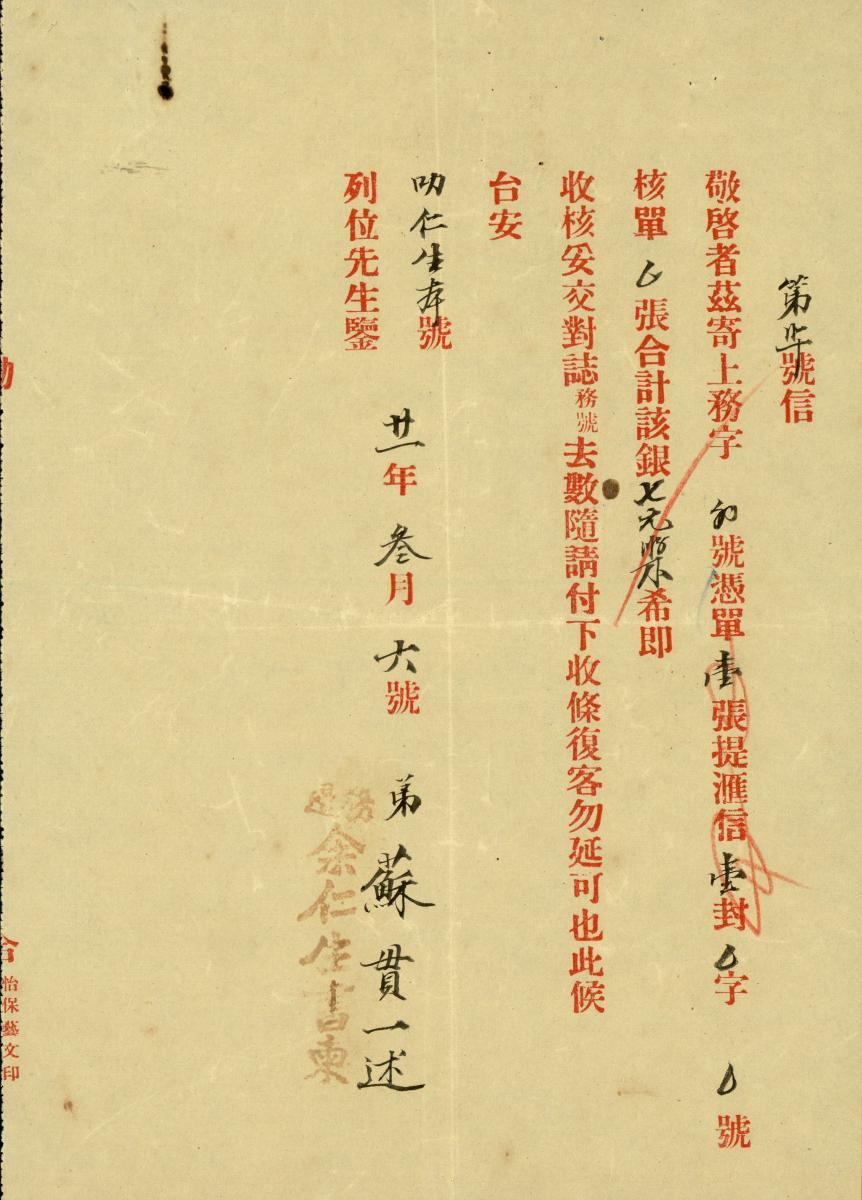 第 號信
敬啓者茲寄上務字 號憑單壹張提滙信壹封 字 號
核單 張合計該銀七元 希即
收核妥交對誌務號去數隨請付下收條復客勿延可也此候
台安
叻仁生 號
列位先生鑒
廿一年叁月六號 弟蘇貫一述
余仁生書柬
怡保藝文印